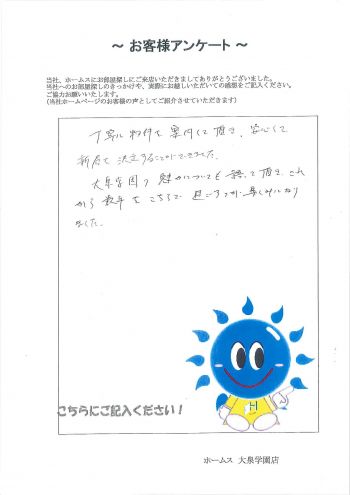 ～ お客様アンケート ～
当社、ホームスにお部屋探しにご来店いただきましてありがとうございました。
当社へのお部屋探しのきっかけや、実際にお越しいただいての感想をご記入ください。
ご協力お願いいたします。
(当社ホームページのお客様の声としてご紹介させていただきます)
丁寧に物件を案内して頂き、安心して
新居を決定することができました。
大泉学園の魅力についても話して頂き、これ
から数年をこちらで過ごすのが楽しみになり
ました。
H
こちらにご記入ください！
ホームス 大泉学園店